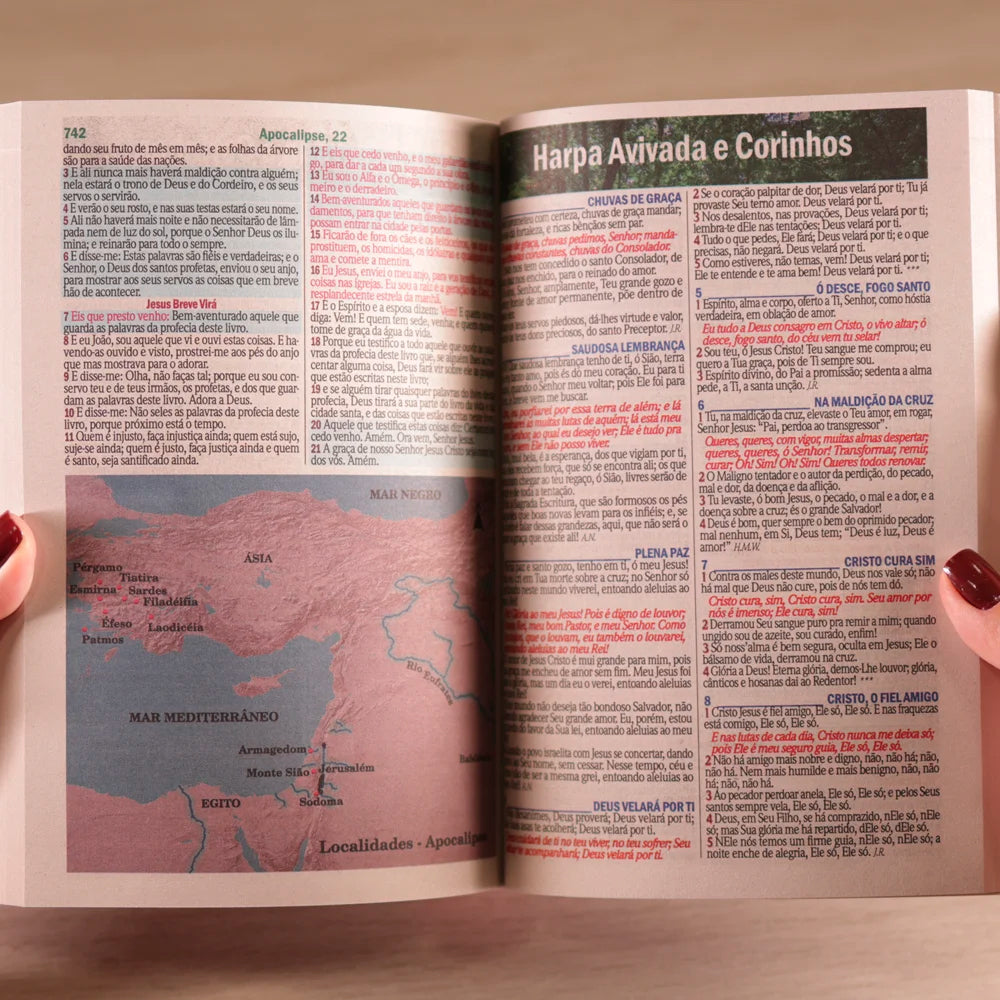 742
Apocalipse, 22
dando seu fruto de mês em mês; e as folhas da árvore
são para a saúde das nações.
3 E ali nunca mais haverá maldição contra alguém;
nela estará o trono de Deus e do Cordeiro, e os seus
servos o servirão.
4 E verão o seu rosto, e nas suas testas estará o seu nome.
5 Ali não haverá mais noite e não necessitarão de lâm-
pada nem de luz do sol, porque o Senhor Deus os ilu-
mina; e reinarão para todo o sempre.
6 E disse-me: Estas palavras são fiéis e verdadeiras; e o
Senhor, o Deus dos santos profetas, enviou o seu anjo,
para mostrar aos seus servos as coisas que em breve
hão de acontecer.
Jesus Breve Virá
7 Eis que presto venho: Bem-aventurado aquele que
guarda as palavras da profecia deste livro.
8 E eu João, sou aquele que vi e ouvi estas coisas. E ha-
vendo-as ouvido e visto, prostrei-me aos pés do anjo
que mas mostrava para o adorar.
9 E disse-me: Olha, não faças tal; porque eu sou con-
servo teu e de teus irmãos, os profetas, e dos que guar-
dam as palavras deste livro. Adora a Deus.
10 E disse-me: Não seles as palavras da profecia deste
livro, porque próximo está o tempo.
11 Quem é injusto, faça injustiça ainda; quem está sujo,
suje-se ainda; quem é justo, faça justiça ainda e quem
é santo, seja santificado ainda.
12 E eis que cedo venho, e o meu galardão
go, para dar a cada um segundo a sua obra.
13 Eu sou o Alfa e o Ômega, o princípio e o
meiro e o derradeiro.
14 Bem-aventurados aqueles que guardam os
damentos, para que tenham direito à árvore
possam entrar na cidade pelas portas.
15 Ficarão de fora os cães e os feiticeiros, os que se
prostituem, os homicidas, os idólatras e qualquer que
ama e comete a mentira.
16 Eu, Jesus, enviei o meu anjo, para vos
coisas nas igrejas. Eu sou a raiz e a geração de
resplandecente estrela da manhã.
17 E o Espírito e a esposa dizem: Vem! E quem
diga: Vem! E quem tem sede, venha; e quem
tome de graça da água da vida.
18 Porque eu testifico a todo aquele que ouvir as
vras da profecia deste livro que, se alguém lhes
centar alguma coisa, Deus fará vir sobre ele as
que estão escritas neste livro;
19 e se alguém tirar quaisquer palavras do livro
profecia, Deus tirará a sua parte do livro da vida
cidade santa, e das coisas que estão
20 Aquele que testifica estas coisas diz:
cedo venho. Amém. Ora vem, Senhor Jesus.
21 A graça de nosso Senhor Jesus Cristo seja
dos vós. Amém.
MAR NEGRO
ÁSIA
Pérgamo
Tiatira
Esmirna
Sardes
Filadélfia
Éfeso
Laodicéia
Patmos
Rio Eufrates
MAR MEDITERRÂNEO
Armagedom
Monte Sião
Jerusalém
Sodoma
EGITO
Localidades - Apocalipse
Harpa Avivada e Corinhos
CHUVAS DE GRAÇA
com certeza, chuvas de graça mandar;
fortaleza, e ricas bênçãos sem par.
de graça, chuvas pedimos, Senhor; manda-
constantes, chuvas do Consolador.
nos tem concedido o santo Consolador, de
nos enchido, para o reinado do amor.
Senhor, amplamente, Teu grande gozo e
fonte de amor permanente, põe dentro de
teus servos piedosos, dá-lhes virtude e valor,
teus dons preciosos, do santo Preceptor. J.R.
SAUDOSA LEMBRANÇA
saudosa lembrança tenho de ti, ó Sião, terra
tanto amo, pois és do meu coração. Eu para ti
quando o Senhor meu voltar; pois Ele foi para
breve vem me buscar.
porfiarei por essa terra de além; e lá
as muitas lutas de aquém; lá está meu
Senhor, ao qual eu desejo ver; Ele é tudo pra
sem Ele não posso viver.
bela, é a esperança, dos que vigiam por ti,
recebem força, que só se encontra ali; os que
chegar ao teu regaço, ó Sião, livres serão de
toda a tentação.
Sagrada Escritura, que são formosos os pés
que boas novas levam para os infiéis; e, se
falar dessas grandezas, aqui, que não será o
graça que existe ali! A.N.
PLENA PAZ
paz e santo gozo, tenho em ti, ó meu Jesus!
em Tua morte sobre a cruz; no Senhor só
neste mundo viverei, entoando aleluias ao
Glória ao meu Jesus! Pois é digno de louvor;
Rei, meu bom Pastor, e meu Senhor. Como
que o louvam, eu também o louvarei,
entoando aleluias ao meu Rei!
amor de Jesus Cristo é mui grande para mim, pois
me encheu de amor sem fim. Meu Jesus foi
glória, mas um dia eu o verei, entoando aleluias
mundo não deseja tão bondoso Salvador, não
agradecer Seu grande amor. Eu, porém, estou
do favor da Sua lei, entoando aleluias ao meu
povo israelita com Jesus se concertar, dando
Seu nome, sem cessar. Nesse tempo, céu e
de ser a mesma grei, entoando aleluias ao
DEUS VELARÁ POR TI
desanimes, Deus proverá; Deus velará por ti;
asas te acolherá; Deus velará por ti.
cuidará de ti no teu viver, no teu sofrer; Seu
te acompanhará; Deus velará por ti.
2 Se o coração palpitar de dor, Deus velará por ti; Tu já
provaste Seu terno amor. Deus velará por ti.
3 Nos desalentos, nas provações, Deus velará por ti;
lembra-te dEle nas tentações; Deus velará por ti.
4 Tudo o que pedes, Ele fará; Deus velará por ti; e o que
precisas, não negará. Deus velará por ti.
5 Como estiveres, não temas, vem! Deus velará por ti;
Ele te entende e te ama bem! Deus velará por ti. ***
5 Ó DESCE, FOGO SANTO
1 Espírito, alma e corpo, oferto a Ti, Senhor, como hóstia
verdadeira, em oblação de amor.
Eu tudo a Deus consagro em Cristo, o vivo altar; ó
desce, fogo santo, do céu vem tu selar!
2 Sou teu, ó Jesus Cristo! Teu sangue me comprou; eu
quero a Tua graça, pois de Ti sempre sou.
3 Espírito divino, do Pai a promissão; sedenta a alma
pede, a Ti, a santa unção. J.R.
6 NA MALDIÇÃO DA CRUZ
1 Tu, na maldição da cruz, elevaste o Teu amor, em rogar,
Senhor Jesus: "Pai, perdoa ao transgressor".
Queres, queres, com vigor, muitas almas despertar;
queres, queres, ó Senhor! Transformar, remir,
curar; Oh! Sim! Oh! Sim! Queres todos renovar.
2 O Maligno tentador e o autor da perdição, do pecado,
mal e dor, da doença e da aflição.
3 Tu levaste, ó bom Jesus, o pecado, o mal e a dor, e a
doença sobre a cruz; és o grande Salvador!
4 Deus é bom, quer sempre o bem do oprimido pecador;
mal nenhum, em Si, Deus tem; "Deus é luz, Deus é
amor!" H.M.W.
7 CRISTO CURA SIM
1 Contra os males deste mundo, Deus nos vale só; não
há mal que Deus não cure, pois de nós tem dó.
Cristo cura, sim, Cristo cura, sim. Seu amor por
nós é imenso; Ele cura, sim!
2 Derramou Seu sangue puro pra remir a mim; quando
ungido sou de azeite, sou curado, enfim!
3 Só noss'alma é bem segura, oculta em Jesus; Ele o
bálsamo de vida, derramou na cruz.
4 Glória a Deus! Eterna glória, demos-Lhe louvor; glória,
cânticos e hosanas dai ao Redentor! ***
8 CRISTO, O FIEL AMIGO
1 Cristo Jesus é fiel amigo, Ele só, Ele só. E nas fraquezas
está comigo, Ele só, Ele só.
E nas lutas de cada dia, Cristo nunca me deixa só;
pois Ele é meu seguro guia, Ele só, Ele só.
2 Não há amigo mais nobre e digno, não, não há; não,
não há. Nem mais humilde e mais benigno, não, não
há; não, não há.
3 Ao pecador perdoar anela, Ele só, Ele só; e pelos Seus
santos sempre vela, Ele só, Ele só.
4 Deus, em Seu Filho, se há comprazido, nEle só, nEle
só; mas Sua glória me há repartido, dEle só, dEle só.
5 NEle nós temos um firme guia, nEle só, nEle só; a
noite enche de alegria, Ele só, Ele só. J.R.